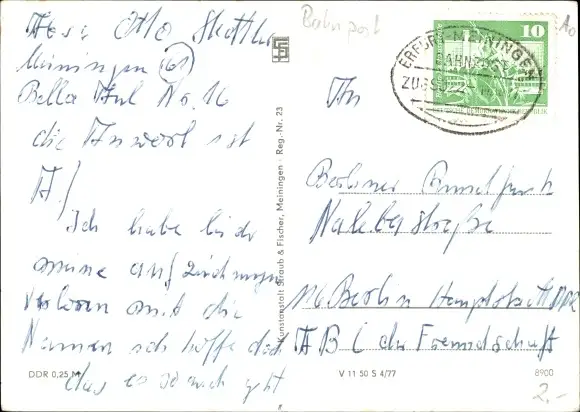 Meiningen 61
Bella Aul No. 16
die Anwort ist
A)
Ich habe leider
meine aufzeichnungen
verloren mit die
Namen ich hoffe das
das es so auch geht
DDR 0,25 M
Kunstanstalt Straub & Fischer, Meiningen Reg.-Nr. 23
Berlin post
10
ERFURT-MEININGEN
BAHNPOST
ZUG
An
Berliner Rundfunk
Nalepastraße
116 Berlin Hauptstadt DDR
ABC der Freundschaft
V 11 50 S 4/77
8900
2,-